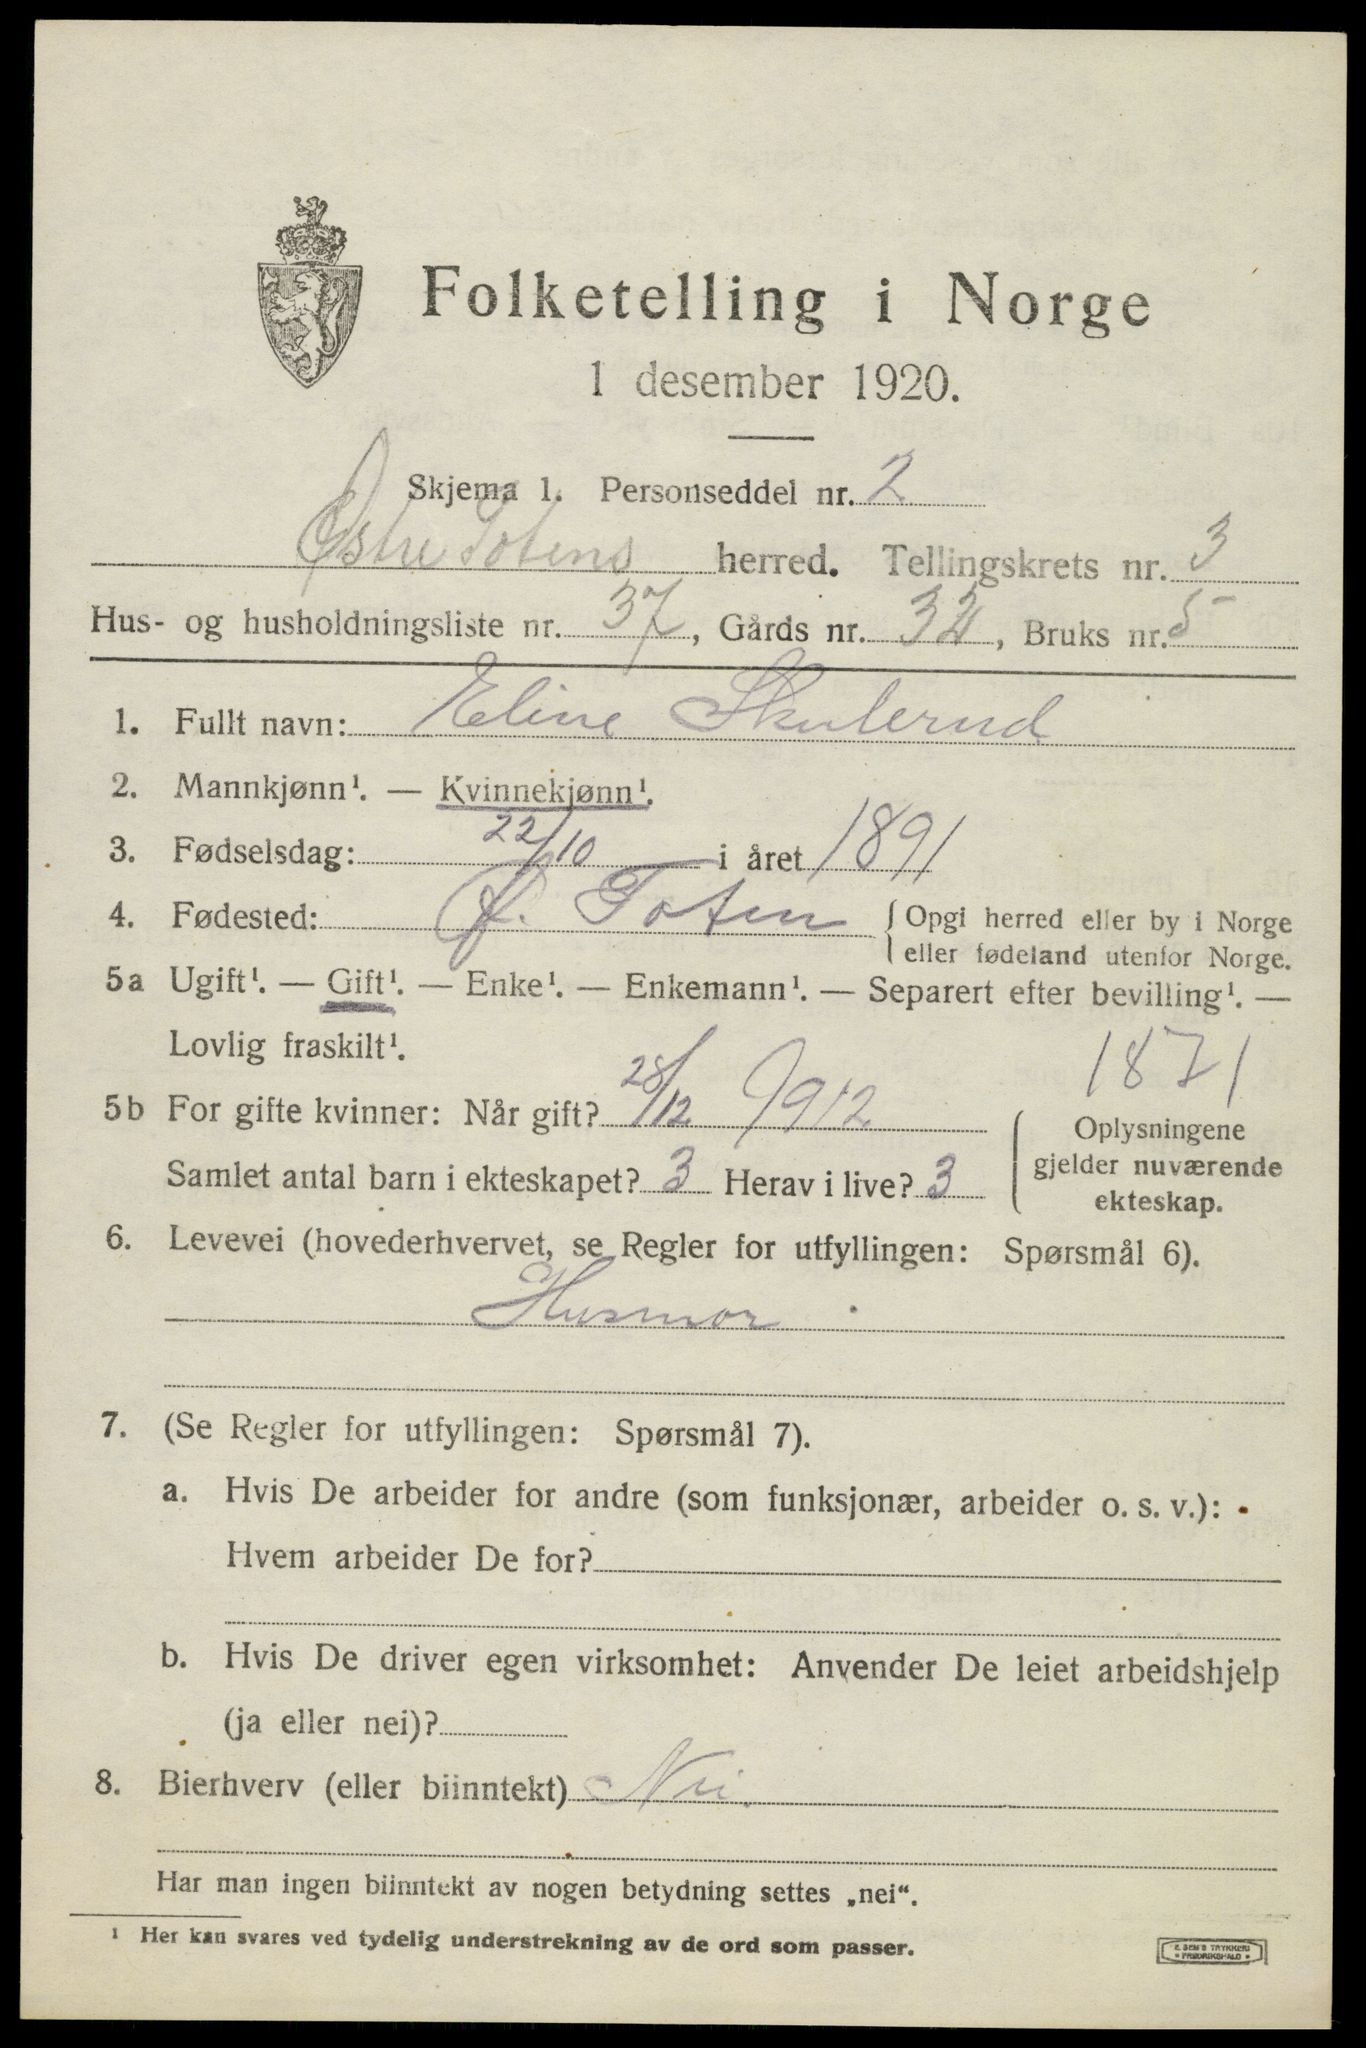 Folketelling i Norge
1 desember 1920.
Skjema 1. Personseddel nr. 2
Østre Totens herred. Tellingskrets nr. 3
Hus- og husholdningsliste nr. 37, Gårds nr. 32, Bruks nr. 5
1. Fullt navn: Eline Skulerud
2. Mannkjønn¹. — Kvinnekjønn¹.
3. Fødselsdag: 22/10 i året 1891
4. Fødested: Ø. Toten { Opgi herred eller by i Norge
eller fødeland utenfor Norge.
5a Ugift¹. — Gift¹. — Enke¹. — Enkemann¹. — Separert efter bevilling¹. —
Lovlig fraskilt¹.
1871
5b For gifte kvinner: Når gift? 28/12 1912
Samlet antal barn i ekteskapet? 3 Herav i live? 3
Oplysningene
gjelder nuværende
ekteskap.
6. Levevei (hovederhvervet, se Regler for utfyllingen: Spørsmål 6).
Husmor
7. (Se Regler for utfyllingen: Spørsmål 7).
a. Hvis De arbeider for andre (som funksjonær, arbeider o. s. v.):
Hvem arbeider De for?
b. Hvis De driver egen virksomhet: Anvender De leiet arbeidshjelp
(ja eller nei)?
8. Bierhverv (eller biinntekt) Nei.
Har man ingen biinntekt av nogen betydning settes „nei“.
¹ Her kan svares ved tydelig understrekning av de ord som passer.
E. SEM'S TRYKKERI
• FREDRIKSHALD •